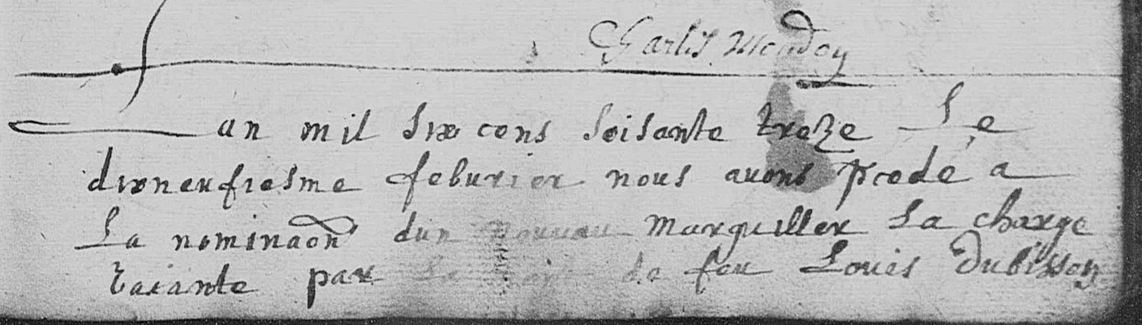 Charles
Lan mil six cens soisante treze Le
dixneufiesme feburier nous auons pcede a
La nominaon dun nouueau marguiller La charge
vacante par de feu Louis Dubisson